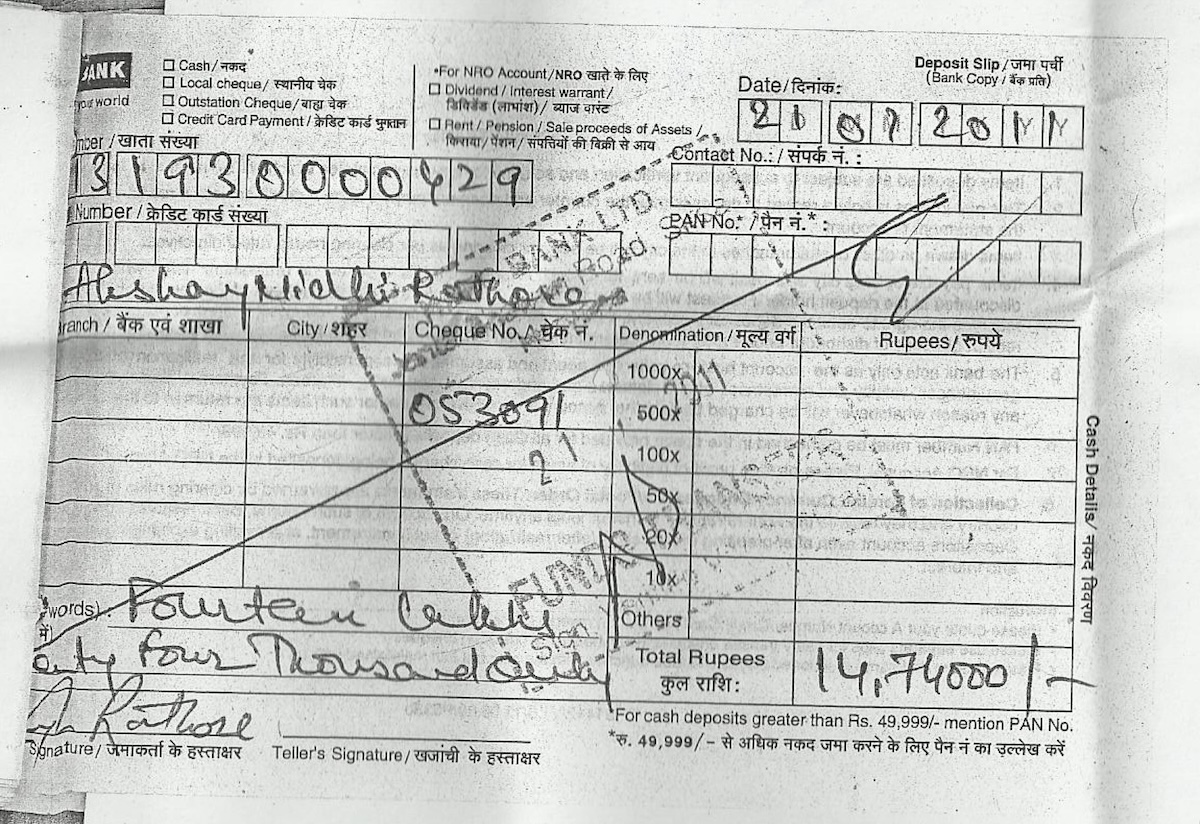 BANK
your world
☐ Cash / नकद
☐ Local cheque / स्थानीय चेक
☐ Outstation Cheque / बाह्य चेक
☐ Credit Card Payment / क्रेडिट कार्ड भुगतान
*For NRO Account / NRO खाते के लिए
☐ Dividend / Interest warrant /
डिविडेंड (लाभांश) / ब्याज वारंट
☐ Rent / Pension / Sale proceeds of Assets /
किराया / पेंशन / संपत्तियों की बिक्री से आय
Deposit Slip / जमा पर्ची
(Bank Copy / बैंक प्रति)
Date / दिनांक:
21 07 2011
mber / खाता संख्या
3 1 9 3 0 0 0 0 4 2 9
Contact No.: / संपर्क नं. :
Number / क्रेडिट कार्ड संख्या
PAN No.* / पैन नं. * :
BANK LTD
Road
Akshay Nidhi Rathore
ranch / बैंक एवं शाखा
City / शहर
Cheque No. / चेक नं.
Denomination / मूल्य वर्ग
Rupees / रुपये
1000x
053091
500x
21
100x
50x
20x
10x
Others
Cash Details / नकद विवरण
words) : Fourteen Lakhs
में)
enty four Thousand Only
Sign
Total Rupees
कुल राशि :
14,74000/-
Rathore
Signature / जमाकर्ता के हस्ताक्षर
Teller's Signature / खजांची के हस्ताक्षर
*For cash deposits greater than Rs. 49,999/- mention PAN No.
*रु. 49,999/- से अधिक नकद जमा करने के लिए पैन नं का उल्लेख करें